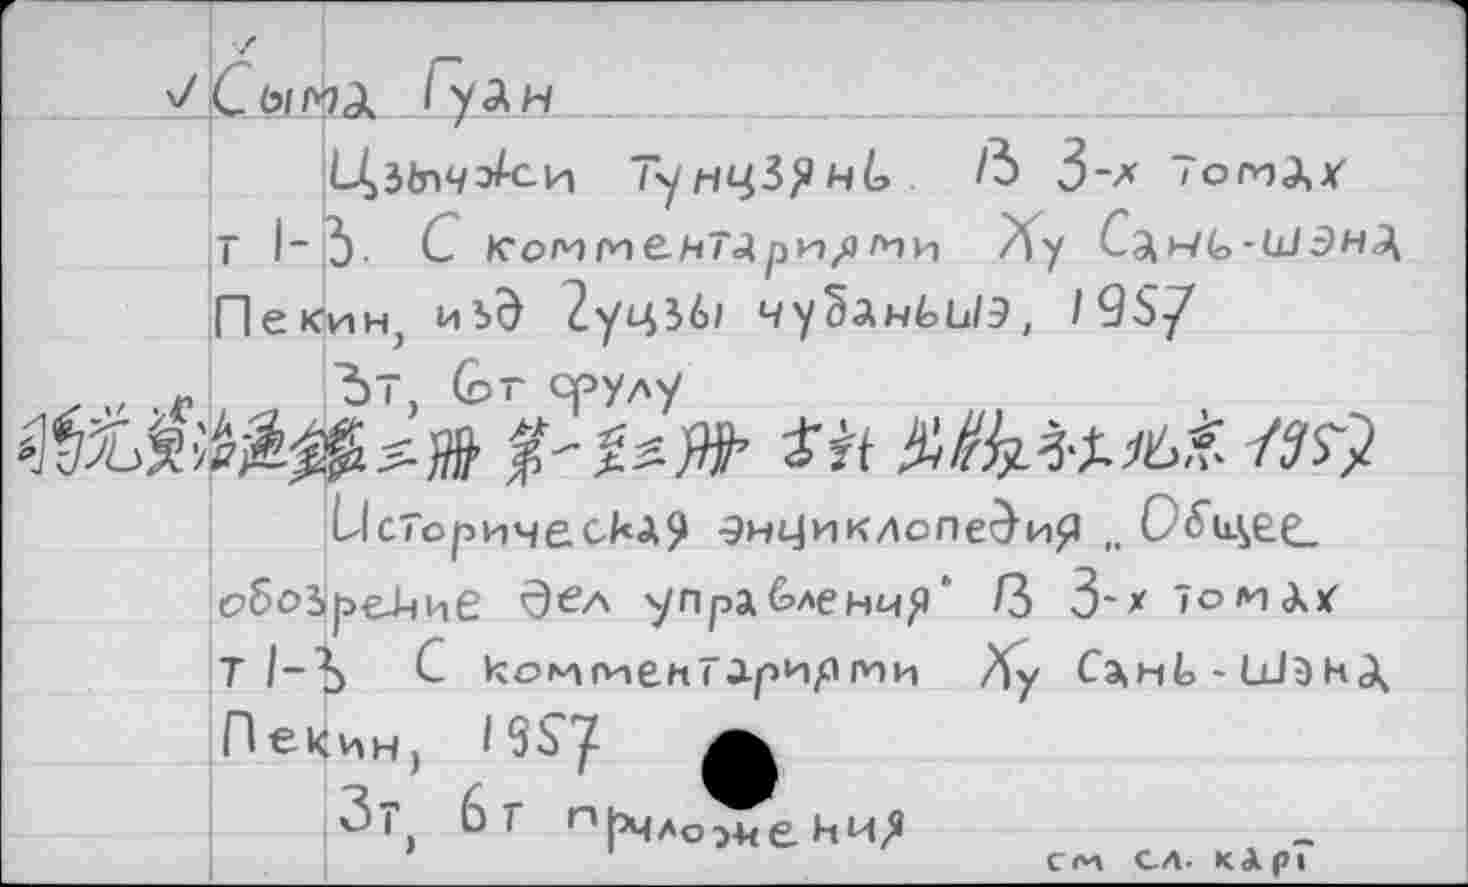 √ Сыма Гуан
Цзычжси Тунцзянь. В 3-х томах
т 1-3. С комментариями Ху Сань-шэна
Пекин, изд Гуцзы чубаньшэ, 1957
3т, бт
資治通鑑三冊 第一至三冊 古社 1957
Историческая энциклопедия „Общее
обозрение дел управления" В 3-х томах
т 1-3 С комментариями Ху Сань-Шэна
Пекин, 1957
3т, 6т приложения
см сл. карт